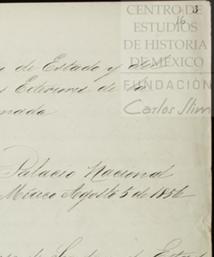 CENTRO DE
ESTUDIOS
DE HISTORIA
DE MÉXICO
FUNDACIÓN
Carlos Slim
16
de Estado y del
Exteriores de la
Palacio Nacional
México Agosto 5 de 1856